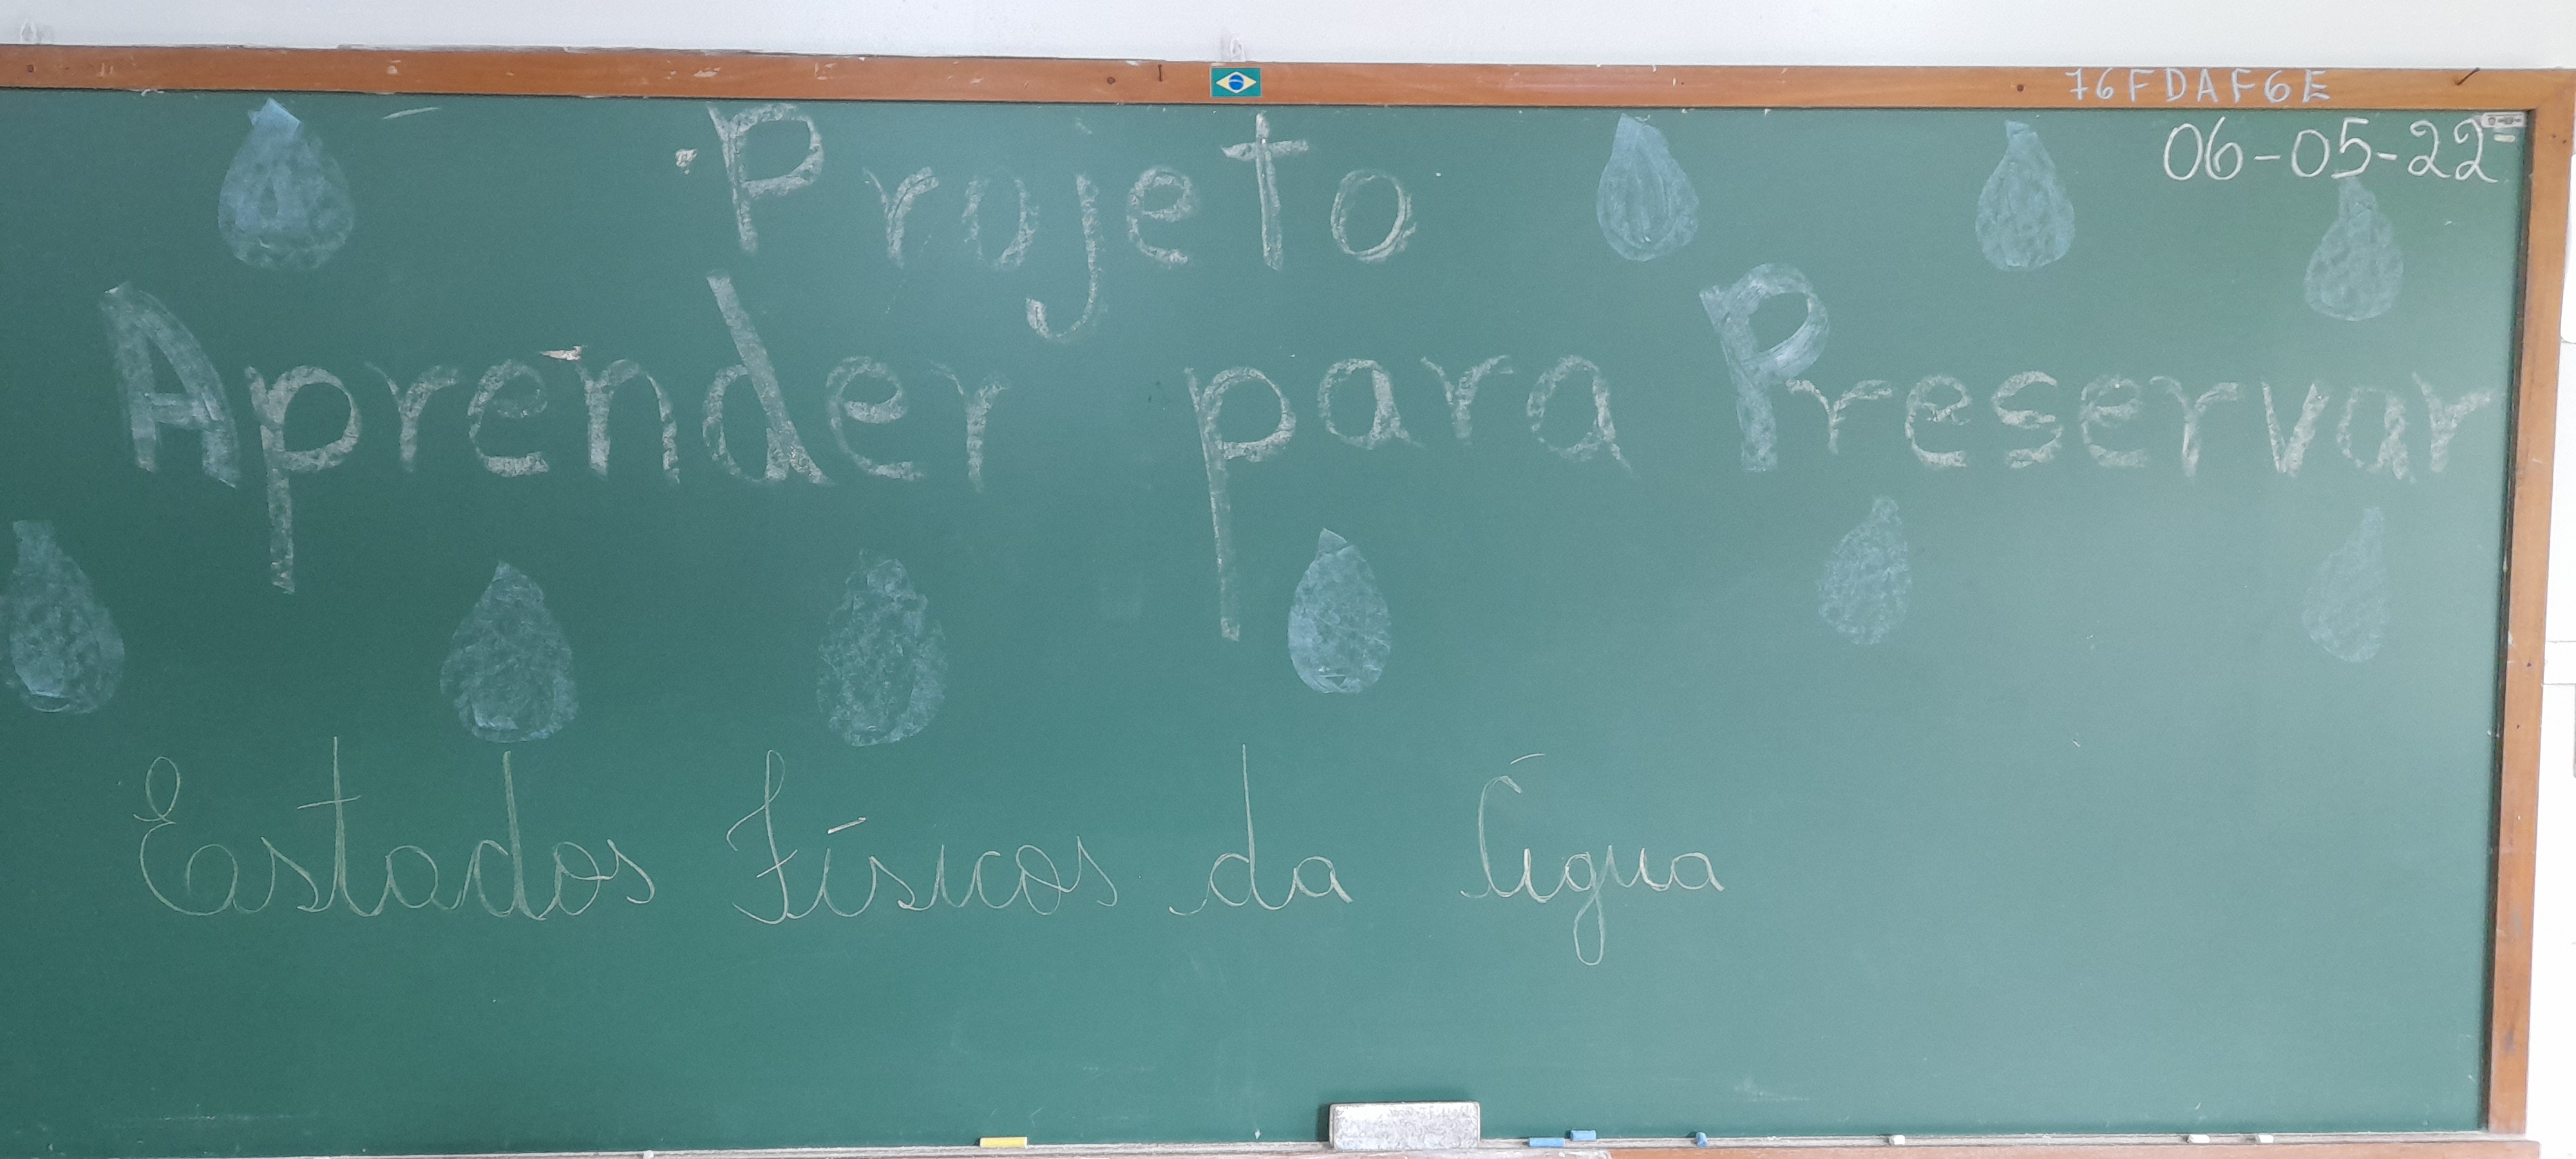 76FDAF6E
06-05-22
Projeto
Aprender para Preservar
Estados Físicos da Água